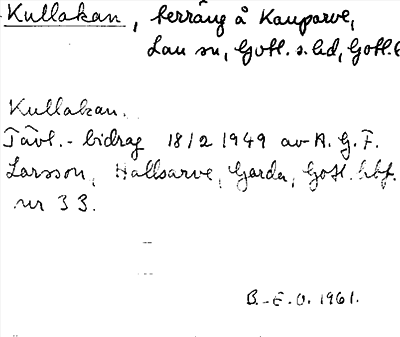 Kullakan, terräng å Kauparve,
Lau sn, Gotl. s. hd, Gotl. l
Kullakan.
Tävl.- bidrag 18/2 1949 av A. G. F.
Larsson, Hallsarve, Garda, Gotl. hbf.
nr 33.
B.-E. O. 1961.